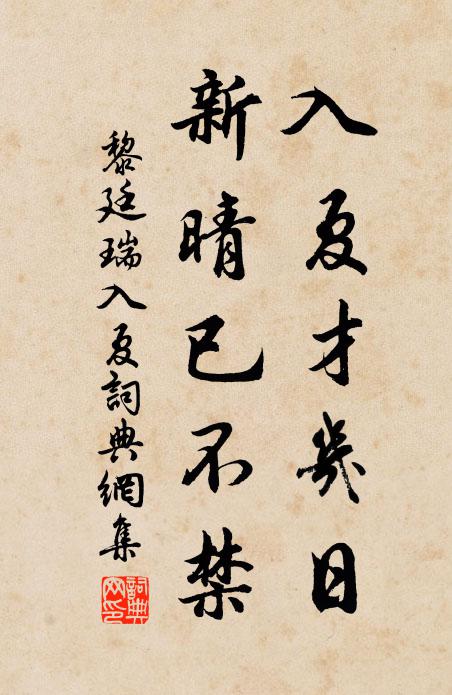 入夏才幾日
新晴已不禁
黎廷瑞入夏詞典網集
詞典網印